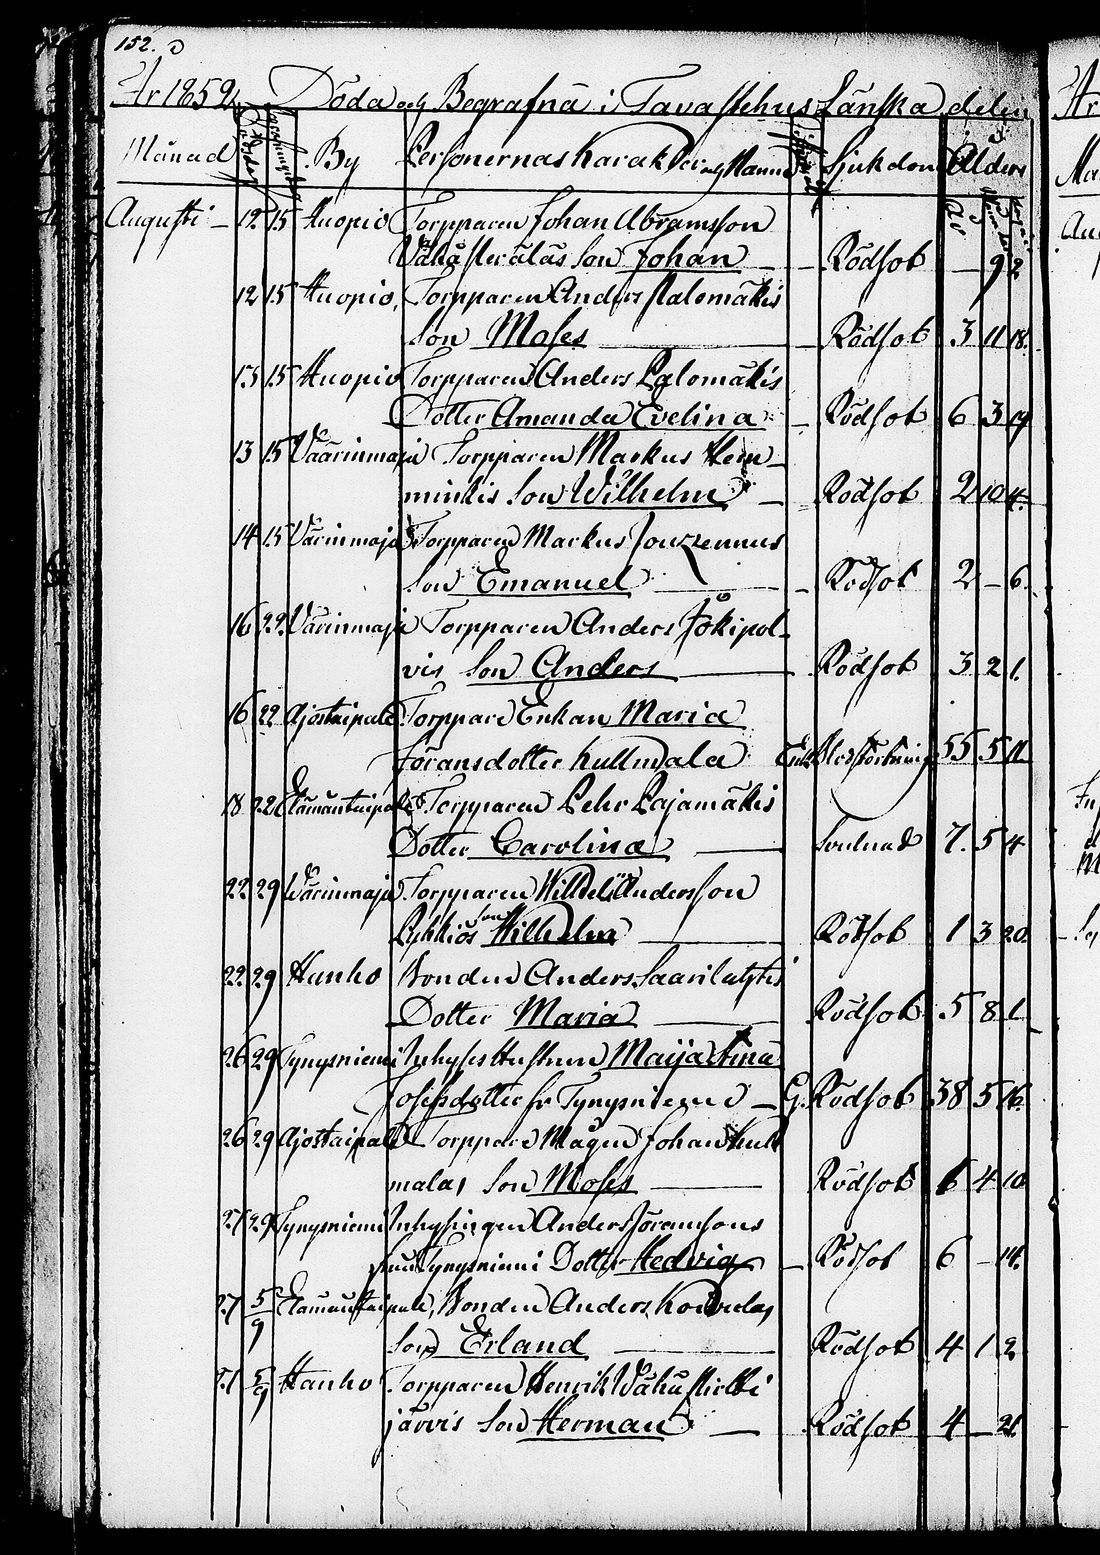 152.
År 1852 Döda och Begrafna i Tavastehus Länska delen
Månad By Personernas karakter och Namn Sjukdom Ålder
År
Augusti 12 15 Kuopio Torpparen Johan Abramsson
son Johan Rödsot 9 2
12 15 Kuopio Torpparen Anders Palomäkis
Son Moses Rödsot 3 11 18.
13 15 Kuopio Torpparen Anders Palomäkis
Dotter Amanda Evelina Rödsot 6 3 19
13 15 Väärinmaja Torpparen Markus Hem-
minkis Son Wilhelm Rödsot 2 10 4.
14 15 Värinmaja Torpparen Markus
Son Emanuel Rödsot 2 - 6.
16 22. Värinmaja Torpparen Anders Jokipol-
vis Son Anders Rödsot 3 2 1.
16 22 Ajostaipale Torppare Enkan Maria
Jöransdotter Kullmala Enk. 55 5 11
18 22 Elämäntaipale Torpparen Pehr Pajamäkis
Dotter Carolina 7. 5 4
22 29 Wärinmaja Torpparen Andersson
son Wilhelm Rödsot 1 3 20
22. 29 Hanho Bonden Anders
Dotter Maria Rödsot 5 8 1
26 29 Tynysniemi Inhyses Hustrun Maija Stina
Josefsdotter fr Tynysniemi G. Rödsot 38 5 16.
26 29 Ajostaipale Torppare Mågen Johan Kull
malas Son Moses Rödsot 6 4 10
27 29 Tynysniemi Inhysingen Anders Jöranssons
från Tynysniemi Dotter Hedvig Rödsot 6 - 14.
27 5/9 Elämäntaipale, Bonden Anders
Son Erland Rödsot 4 1 2
31 5/9 Hanho Torpparen Henrik
järvis Son Herman Rödsot 4 - 21.